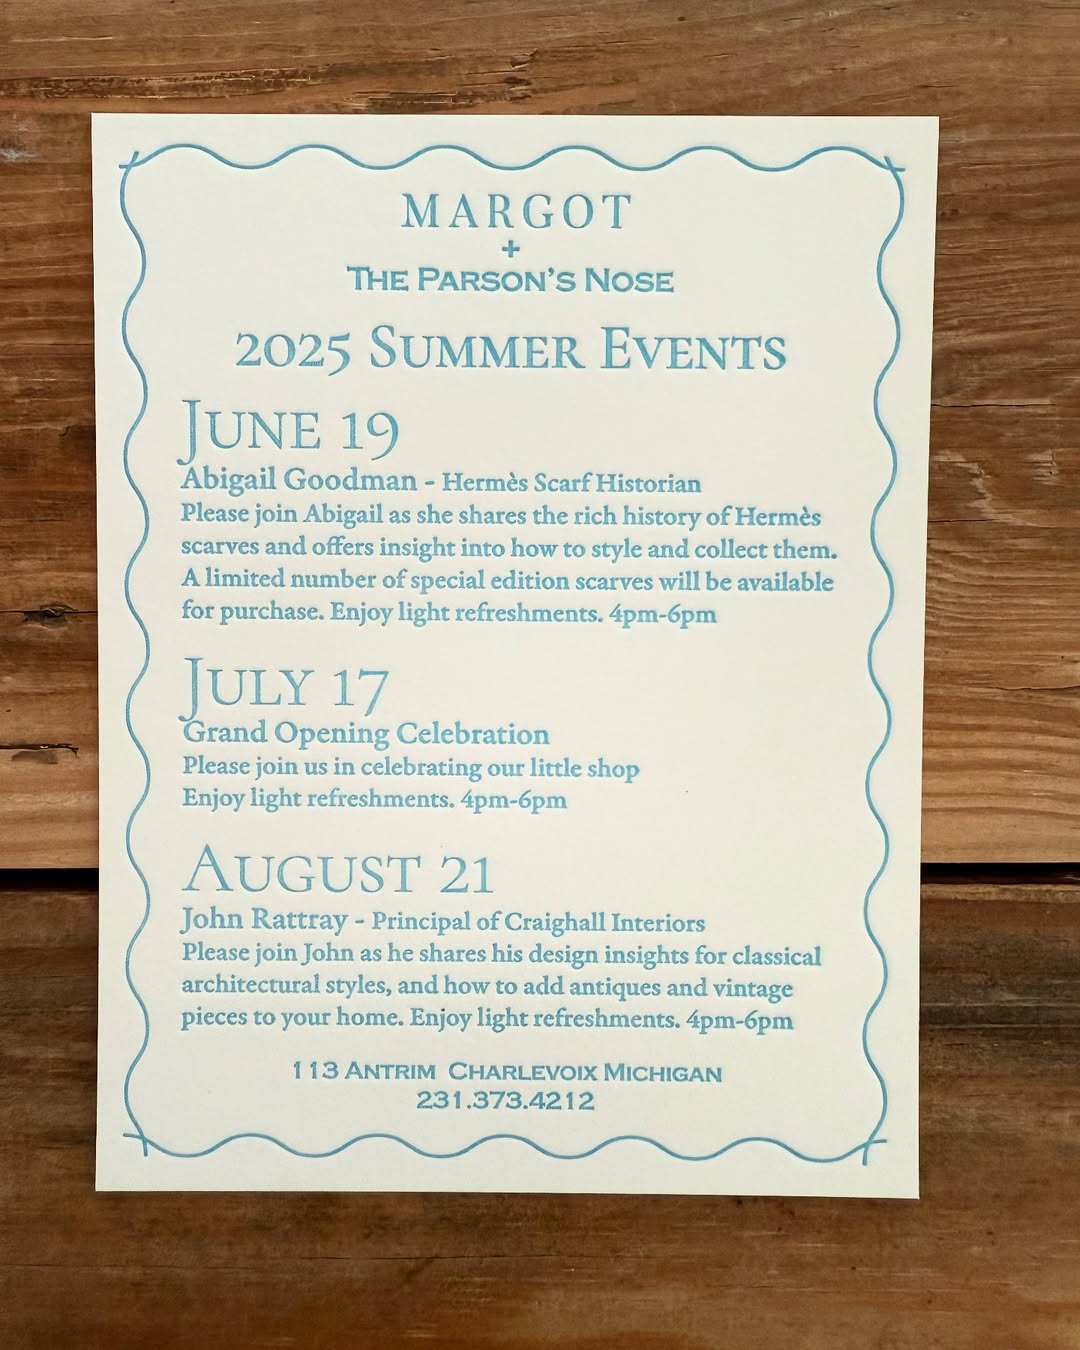 MARGOT
+
THE PARSON'S NOSE
2025 SUMMER EVENTS
JUNE 19
Abigail Goodman - Hermès Scarf Historian
Please join Abigail as she shares the rich history of Hermès
scarves and offers insight into how to style and collect them.
A limited number of special edition scarves will be available
for purchase. Enjoy light refreshments. 4pm-6pm
JULY 17
Grand Opening Celebration
Please join us in celebrating our little shop
Enjoy light refreshments. 4pm-6pm
AUGUST 21
John Rattray - Principal of Craighall Interiors
Please join John as he shares his design insights for classical
architectural styles, and how to add antiques and vintage
pieces to your home. Enjoy light refreshments. 4pm-6pm
113 ANTRIM CHARLEVOIX MICHIGAN
231.373.4212